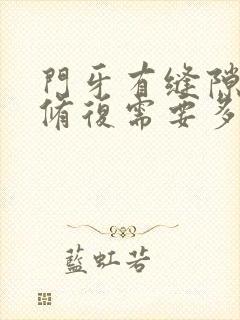 門牙有縫隙
脩復需要多
藍虹若